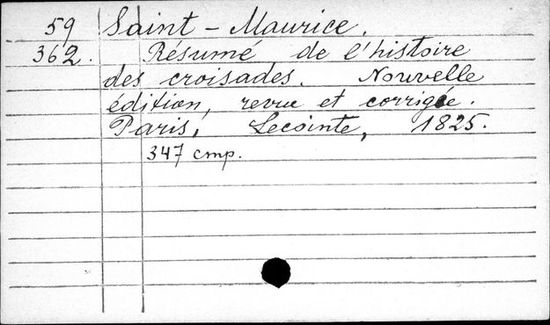 59 Saint-Maurice.
362. Résumé de l'histoire
des croisades. Nouvelle
édition, revue et corrigée.
Paris, Lecointe, 1825.
347 стр.